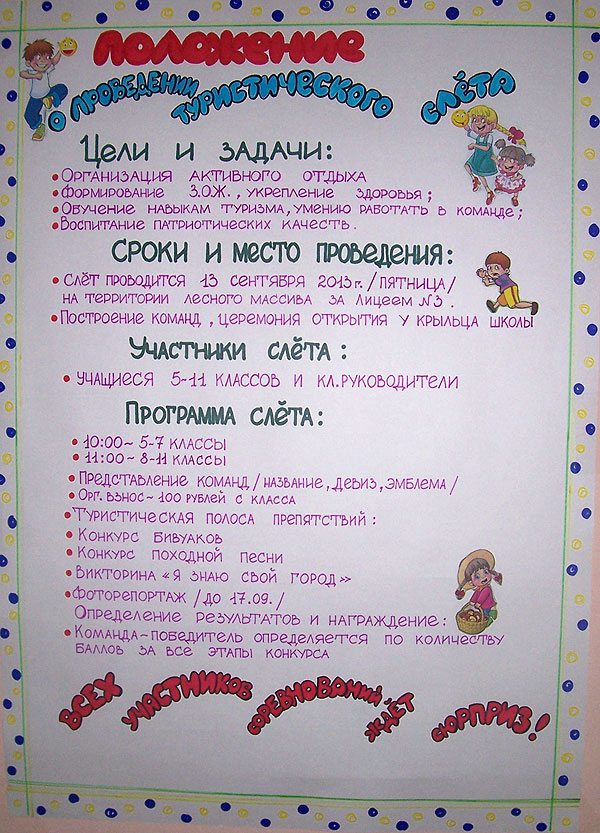 ПОЛОЖЕНИЕ
О ПРОВЕДЕНИИ ТУРИСТИЧЕСКОГО СЛЁТА
ЦЕЛИ И ЗАДАЧИ:
• ОРГАНИЗАЦИЯ АКТИВНОГО ОТДЫХА
• ФОРМИРОВАНИЕ З.О.Ж., УКРЕПЛЕНИЕ ЗДОРОВЬЯ;
• ОБУЧЕНИЕ НАВЫКАМ ТУРИЗМА, УМЕНИЮ РАБОТАТЬ В КОМАНДЕ;
• ВОСПИТАНИЕ ПАТРИОТИЧЕСКИХ КАЧЕСТВ.
СРОКИ И МЕСТО ПРОВЕДЕНИЯ:
• СЛЁТ ПРОВОДИТСЯ 13 СЕНТЯБРЯ 2013г. /ПЯТНИЦА/
НА ТЕРРИТОРИИ ЛЕСНОГО МАССИВА ЗА ЛИЦЕЕМ №3.
• ПОСТРОЕНИЕ КОМАНД, ЦЕРЕМОНИЯ ОТКРЫТИЯ У КРЫЛЬЦА ШКОЛЫ
УЧАСТНИКИ СЛЁТА:
• УЧАЩИЕСЯ 5-11 КЛАССОВ И КЛ.РУКОВОДИТЕЛИ
ПРОГРАММА СЛЁТА:
• 10:00 ~ 5-7 КЛАССЫ
• 11:00 ~ 8-11 КЛАССЫ
• ПРЕДСТАВЛЕНИЕ КОМАНД /НАЗВАНИЕ, ДЕВИЗ, ЭМБЛЕМА/
• ОРГ. ВЗНОС ~ 100 РУБЛЕЙ С КЛАССА
• ТУРИСТИЧЕСКАЯ ПОЛОСА ПРЕПЯТСТВИЙ:
• КОНКУРС БИВУАКОВ
• КОНКУРС ПОХОДНОЙ ПЕСНИ
• ВИКТОРИНА «Я ЗНАЮ СВОЙ ГОРОД»
• ФОТОРЕПОРТАЖ /ДО 17.09./
ОПРЕДЕЛЕНИЕ РЕЗУЛЬТАТОВ И НАГРАЖДЕНИЕ:
• КОМАНДА ~ ПОБЕДИТЕЛЬ ОПРЕДЕЛЯЕТСЯ ПО КОЛИЧЕСТВУ
БАЛЛОВ ЗА ВСЕ ЭТАПЫ КОНКУРСА
ВСЕХ УЧАСТНИКОВ СОРЕВНОВАНИЙ ЖДЁТ СЮРПРИЗ!